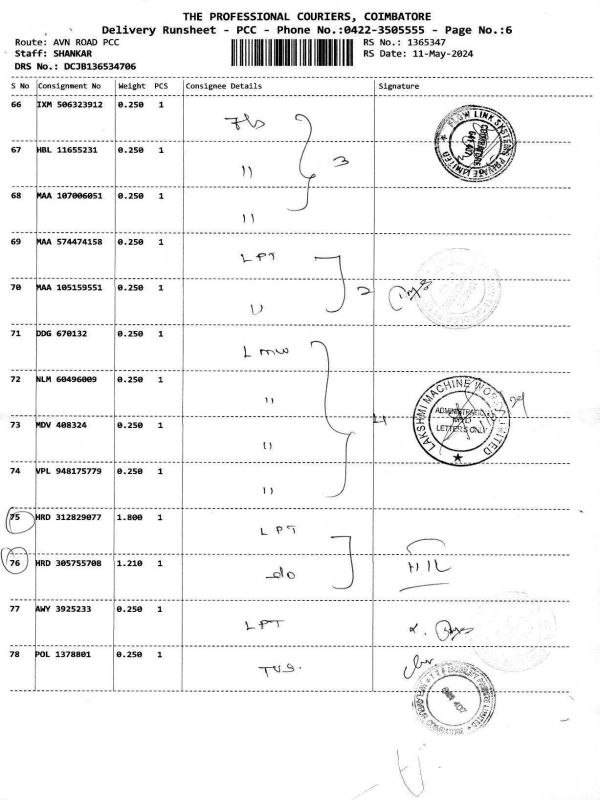 THE PROFESSIONAL COURIERS, COIMBATORE
Delivery Runsheet - PCC - Phone No.:0422-3505555 - Page No.:6
Route: AVN ROAD PCC RS No.: 1365347
Staff: SHANKAR RS Date: 11-May-2024
DRS No.: DCJB136534706
S No Consignment No Weight PCS Consignee Details Signature
66 IXM 506323912 0.250 1
67 HBL 11655231 0.250 1 " 3
68 MAA 107006051 0.250 1 "
69 MAA 574474158 0.250 1 LPT
70 MAA 105159551 0.250 1 " 2
71 DDG 670132 0.250 1 LMW
72 NLM 60496009 0.250 1 "
73 MDV 408324 0.250 1 " 4
74 VPL 948175779 0.250 1 "
75 HRD 312829077 1.800 1 LPT
76 HRD 305755708 1.210 1 do
77 AWY 3925233 0.250 1 LPT
78 POL 1378801 0.250 1 TVS.
FLOW LINK SYSTEMS PRIVATE LIMITED
COIMBATORE
LAKSHMI MACHINE WORKS LIMITED
LETTERS ONLY